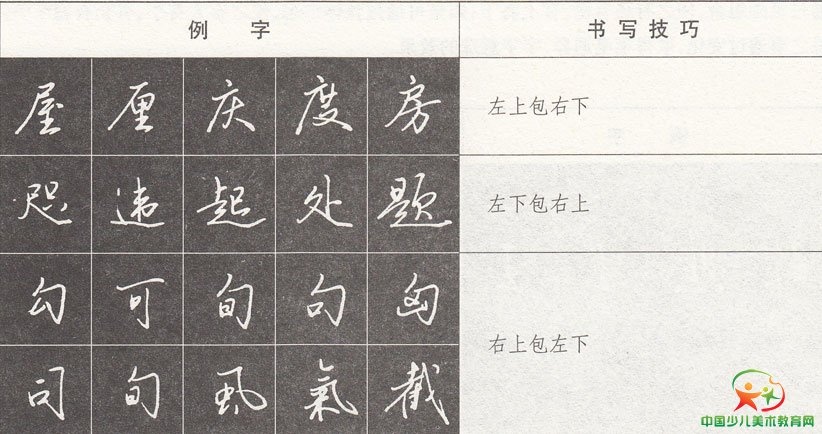 例 字 书写技巧
屋 厘 庆 度 房 左上包右下
咫 违 起 处 题 左下包右上
勾 可 旬 句 匈 右上包左下
司 旬 虱 氣 截
中国少儿美术教育网